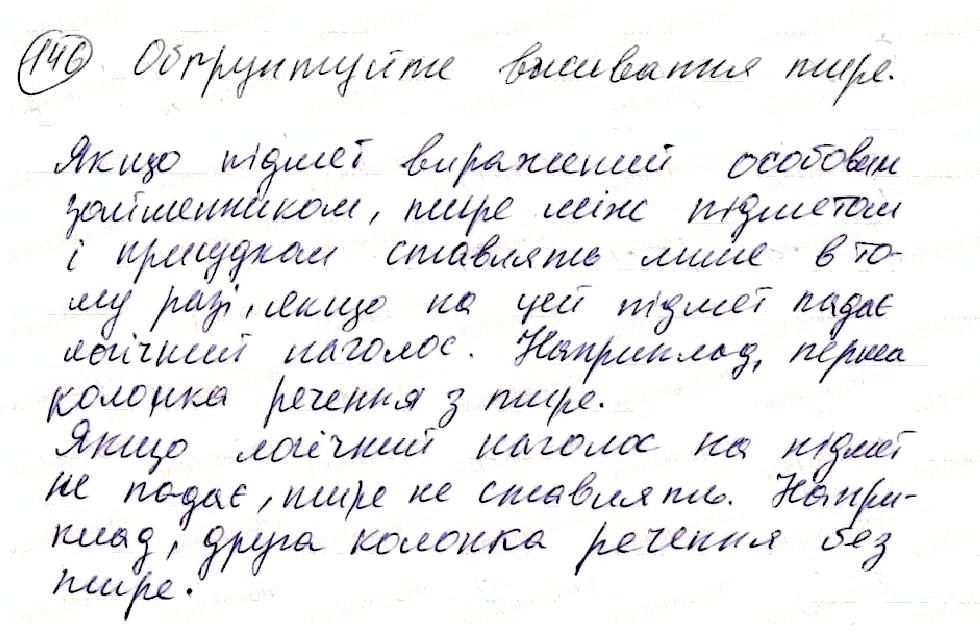 146 Обґрунтуйте вживання тире.
Якщо підмет виражений особовим
займенником, тире між підметом
і присудком ставлять лише в то-
му разі, якщо на цей підмет падає
логічний наголос. Наприклад, перша
колонка речення з тире.
Якщо логічний наголос на підмет
не падає, тире не ставлять. Напри-
клад, друга колонка речення без
тире.